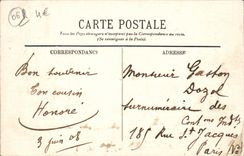 CARTE POSTALE
Tous les Pays étrangers n'acceptent pas la Correspondance au recto.
(Se renseigner à la Poste).
CORRESPONDANCE
ADRESSE
Bon souvenir
Ton cousin
Honoré
3 juin 08
Monsieur Gaston
Dozol
surnuméraire des
185 Rue St Jacques
Paris